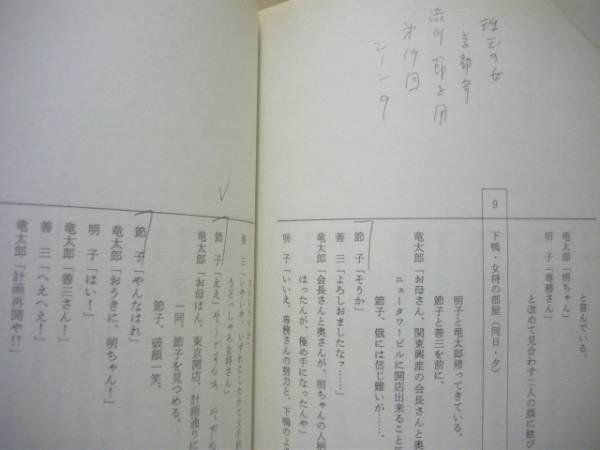 京都弁
節子用
第19回
シーン9
と喜んでいる。
竜太郎「明ちゃん」
明 子「専務さん」
と改めて見合わす二人の顔に
9 下鴨・女将の部屋(同日・夕)
明子と竜太郎帰ってきている。
節子と善三を前に、
竜太郎「お母さん、関東興産の会長さんと奥
ニュータワービルに開店出来ること
節子、俄には信じ難いが……、
節 子「そうか」
善 三「よろしおましたなァ……」
竜太郎「会長さんと奥さんが、明ちゃんの人柄
はったんが、極め手になったんや」
明 子「いいえ、専務さんの努力と、下鴨のよ
善 三
節 子「ええ」
竜太郎「お母はん、東京開店、計画通りに
一同、節子を見つめる。
節子、破顔一笑、
節 子「やんなはれ」
竜太郎「おうきに、明ちゃん!」
明 子「はい!」
竜太郎「善三さん!」
善 三「へえへえ!」
竜太郎「計画再開や!!」